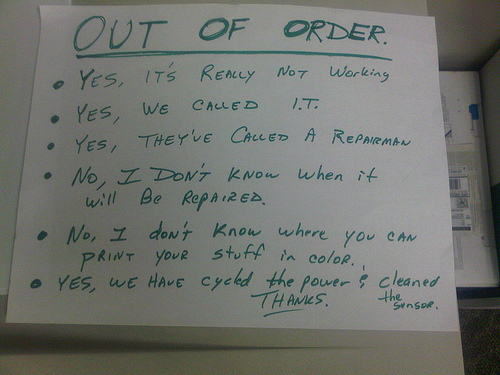 OUT OF ORDER.
• YES, IT'S REALLY NOT Working
• YES, WE CALLED I.T.
• YES, THEY'VE CALLED A REPAIRMAN
• NO, I DON'T KNOW when if
will BE REPAIRED.
• NO, I don't KNOW where you CAN
PRINT YOUR stuff in color.
• YES, WE HAVE cycled the power & cleaned
the sensor.
THANKS.